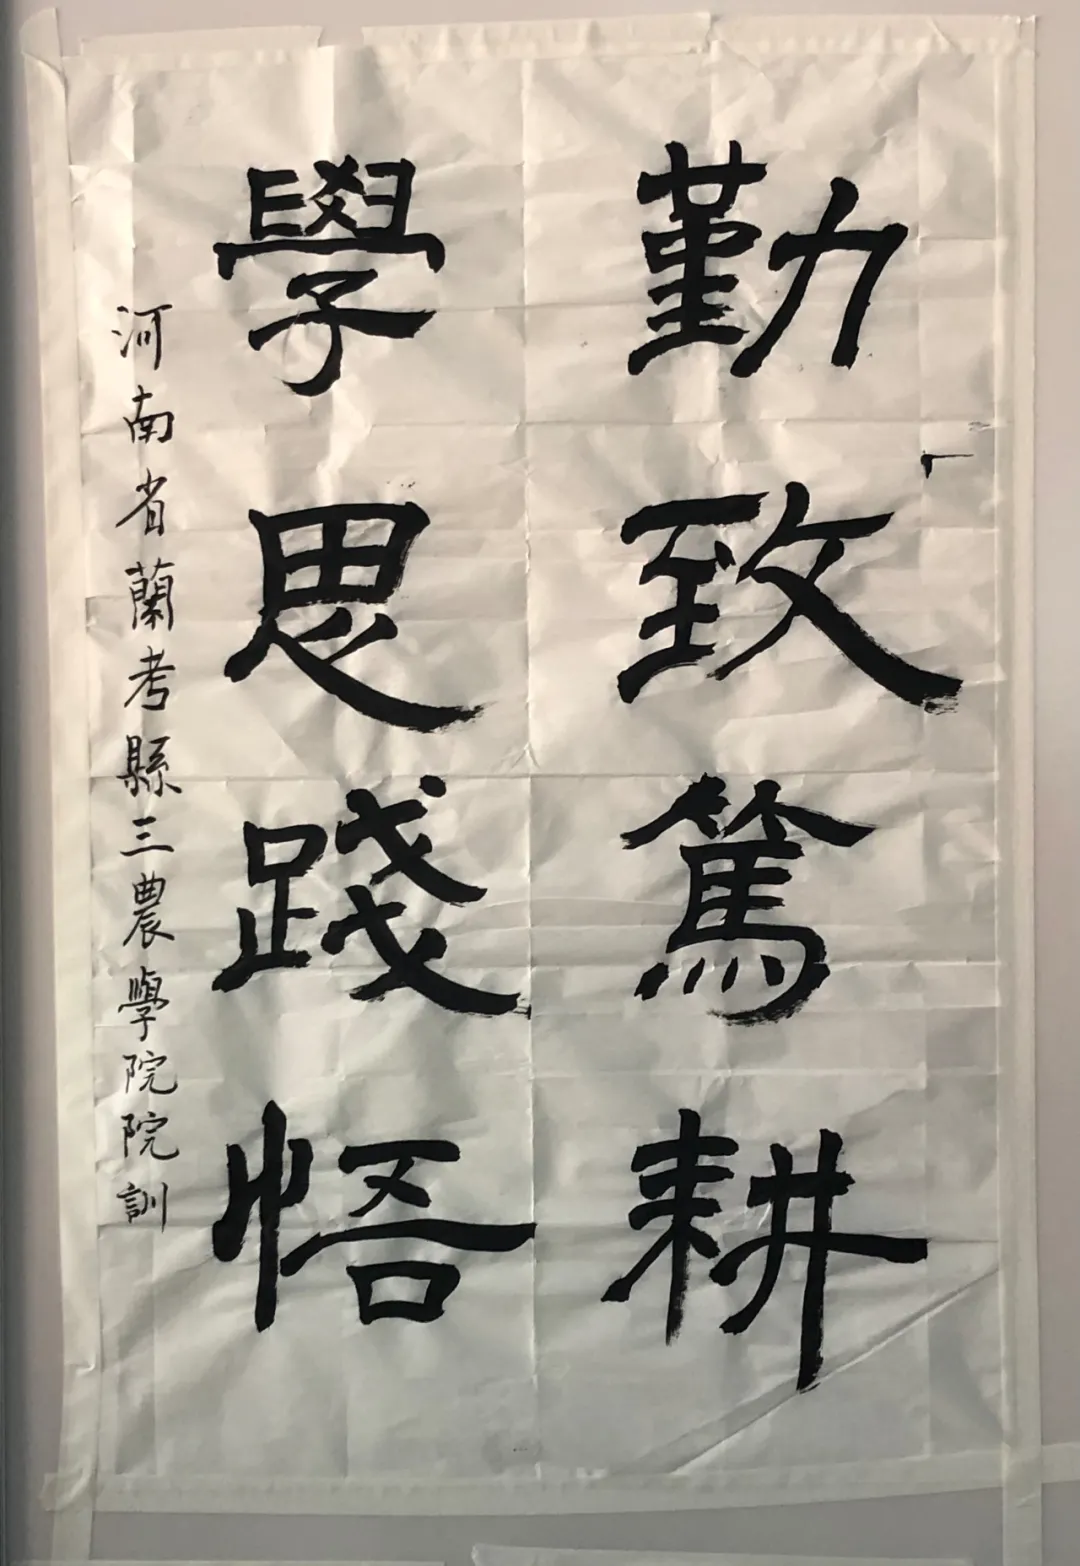 勤致篤耕
學思踐悟
河南省蘭考縣三農學院院訓